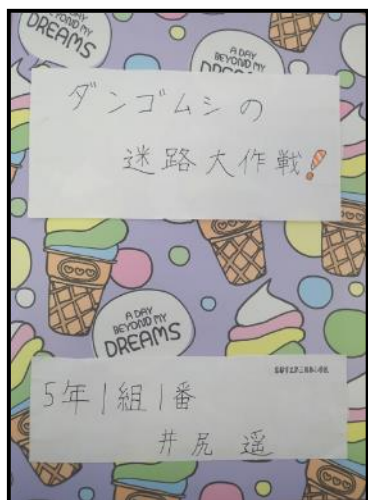 BEYOND MY
DREAMS
A DAY
BEYOND MY
ダンゴムシの
迷路大作戦!
A DAY
BEYOND MY
DREAMS
5年1組1番
井尻 遥